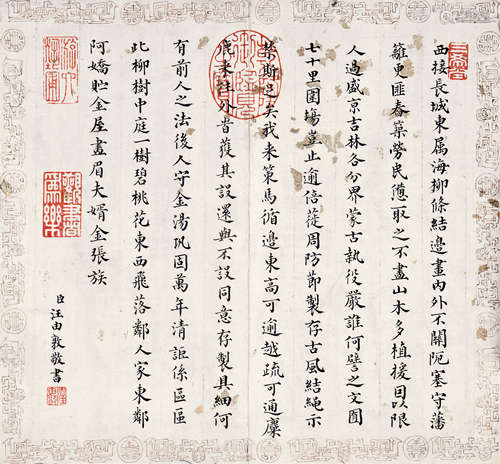 西接長城東属海柳條結邊畫內外不關阨塞守藩
籬更匪春築勞民憊取之不盡山木多植援因以限
人過盛京吉林各分界蒙古執役嚴誰何譬之文囿
七十里圍場豈止逾倍蓰周防節製存古風結繩示
禁斯足矣我來策馬循邊東高可逾越疏可通麋
來往外者獲其設還與不設同意存製具細何
有前人之法後人守金湯鞏固萬年清詎係區區
此柳樹中庭一樹碧桃花東西飛落鄰人家東鄰
阿嬌貯金屋畫眉大婿金張族
臣汪由敦敬書